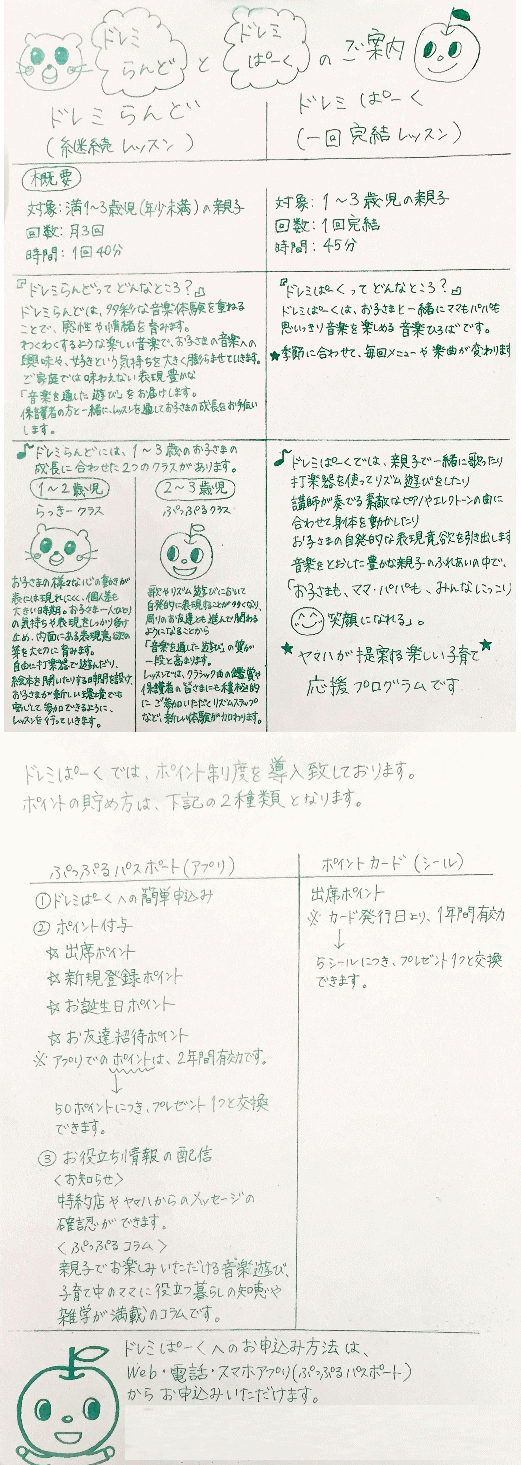 ドレミらんど と ドレミぱーく のご案内
ドレミらんど
(継続レッスン)
ドレミぱーく
(一回完結レッスン)
概要
対象:満1~3歳児(年少未満)の親子
回数:月3回
時間:1回40分
対象:1~3歳児の親子
回数:1回完結
時間:45分
『ドレミらんどってどんなところ?』
ドレミらんどは、多彩な音楽体験を重ねる
ことで、感性や情緒を育みます。
わくわくするような楽しい音楽で、お子さまの音楽への
興味や、好きという気持ちを大きく膨らませていきます。
ご家庭では味わえない表現豊かな
「音楽を通した遊び」をお届けします。
保護者の方と一緒に、レッスンを通してお子さまの成長をお手伝い
します。
『ドレミぱーくってどんなところ?』
ドレミぱーくは、お子さまと一緒にママもパパも
思いっきり音楽を楽しめる音楽ひろばです。
★季節に合わせて、毎回メニューや楽曲が変わります
♪ドレミらんどには、1~3歳のお子さまの
成長に合わせた2つのクラスがあります。
1~2歳児
らっきークラス
お子さまの様々な心の動きが
表には現れにくく、個人差も
大きい時期。お子さま一人ひとり
の気持ちや表現をしっかり受け
止め、内面にある表現意欲の
芽を大切に育みます。
自由に打楽器で遊んだり、
絵本を聞いたりする時間を設け、
お子さまが新しい環境でも
安心して参加できるように、
レッスンを行っていきます。
2~3歳児
ぷっぷるクラス
歌やリズム遊びにおいて
自発的に表現することが多くなり、
周りのお友達とも進んで関わる
ようになることから
「音楽を通した遊び」の質が
一段と高まります。
レッスンでは、クラシック曲の鑑賞や
保護者の皆さまにも積極的
にご参加いただくリズムステップ
など、新しい体験が加わります。
♪ドレミぱーくでは、親子で一緒に歌ったり
打楽器を使ってリズム遊びをしたり
講師が奏でる素敵なピアノやエレクトーンの曲に
合わせて身体を動かしたり
お子さまの自発的な表現意欲を引き出します
音楽をとおした豊かな親子のふれあいの中で、
「お子さまも、ママ・パパも、みんなにっこり
笑顔になれる」。
★ヤマハが提案する楽しい子育て★
応援プログラムです
ドレミぱーくでは、ポイント制度を導入致しております。
ポイントの貯め方は、下記の2種類となります。
ぷっぷるパスポート(アプリ)
①ドレミぱーくへの簡単申込み
②ポイント付与
☆出席ポイント
☆新規登録ポイント
☆お誕生日ポイント
☆お友達招待ポイント
※アプリでのポイントは、2年間有効です。
↓
50ポイントにつき、プレゼント1つと交換
できます。
③お役立ち情報の配信
<お知らせ>
特約店やヤマハからのメッセージの
確認ができます。
<ぷっぷるコラム>
親子でお楽しみいただける音楽遊び、
子育て中のママに役立つ暮らしの知恵や
雑学が満載のコラムです。
ポイントカード(シール)
出席ポイント
※カード発行日より、1年間有効
↓
5シールにつき、プレゼント1つと交換
できます。
ドレミぱーくへのお申込み方法は、
Web・電話・スマホアプリ(ぷっぷるパスポート)
からお申込みいただけます。